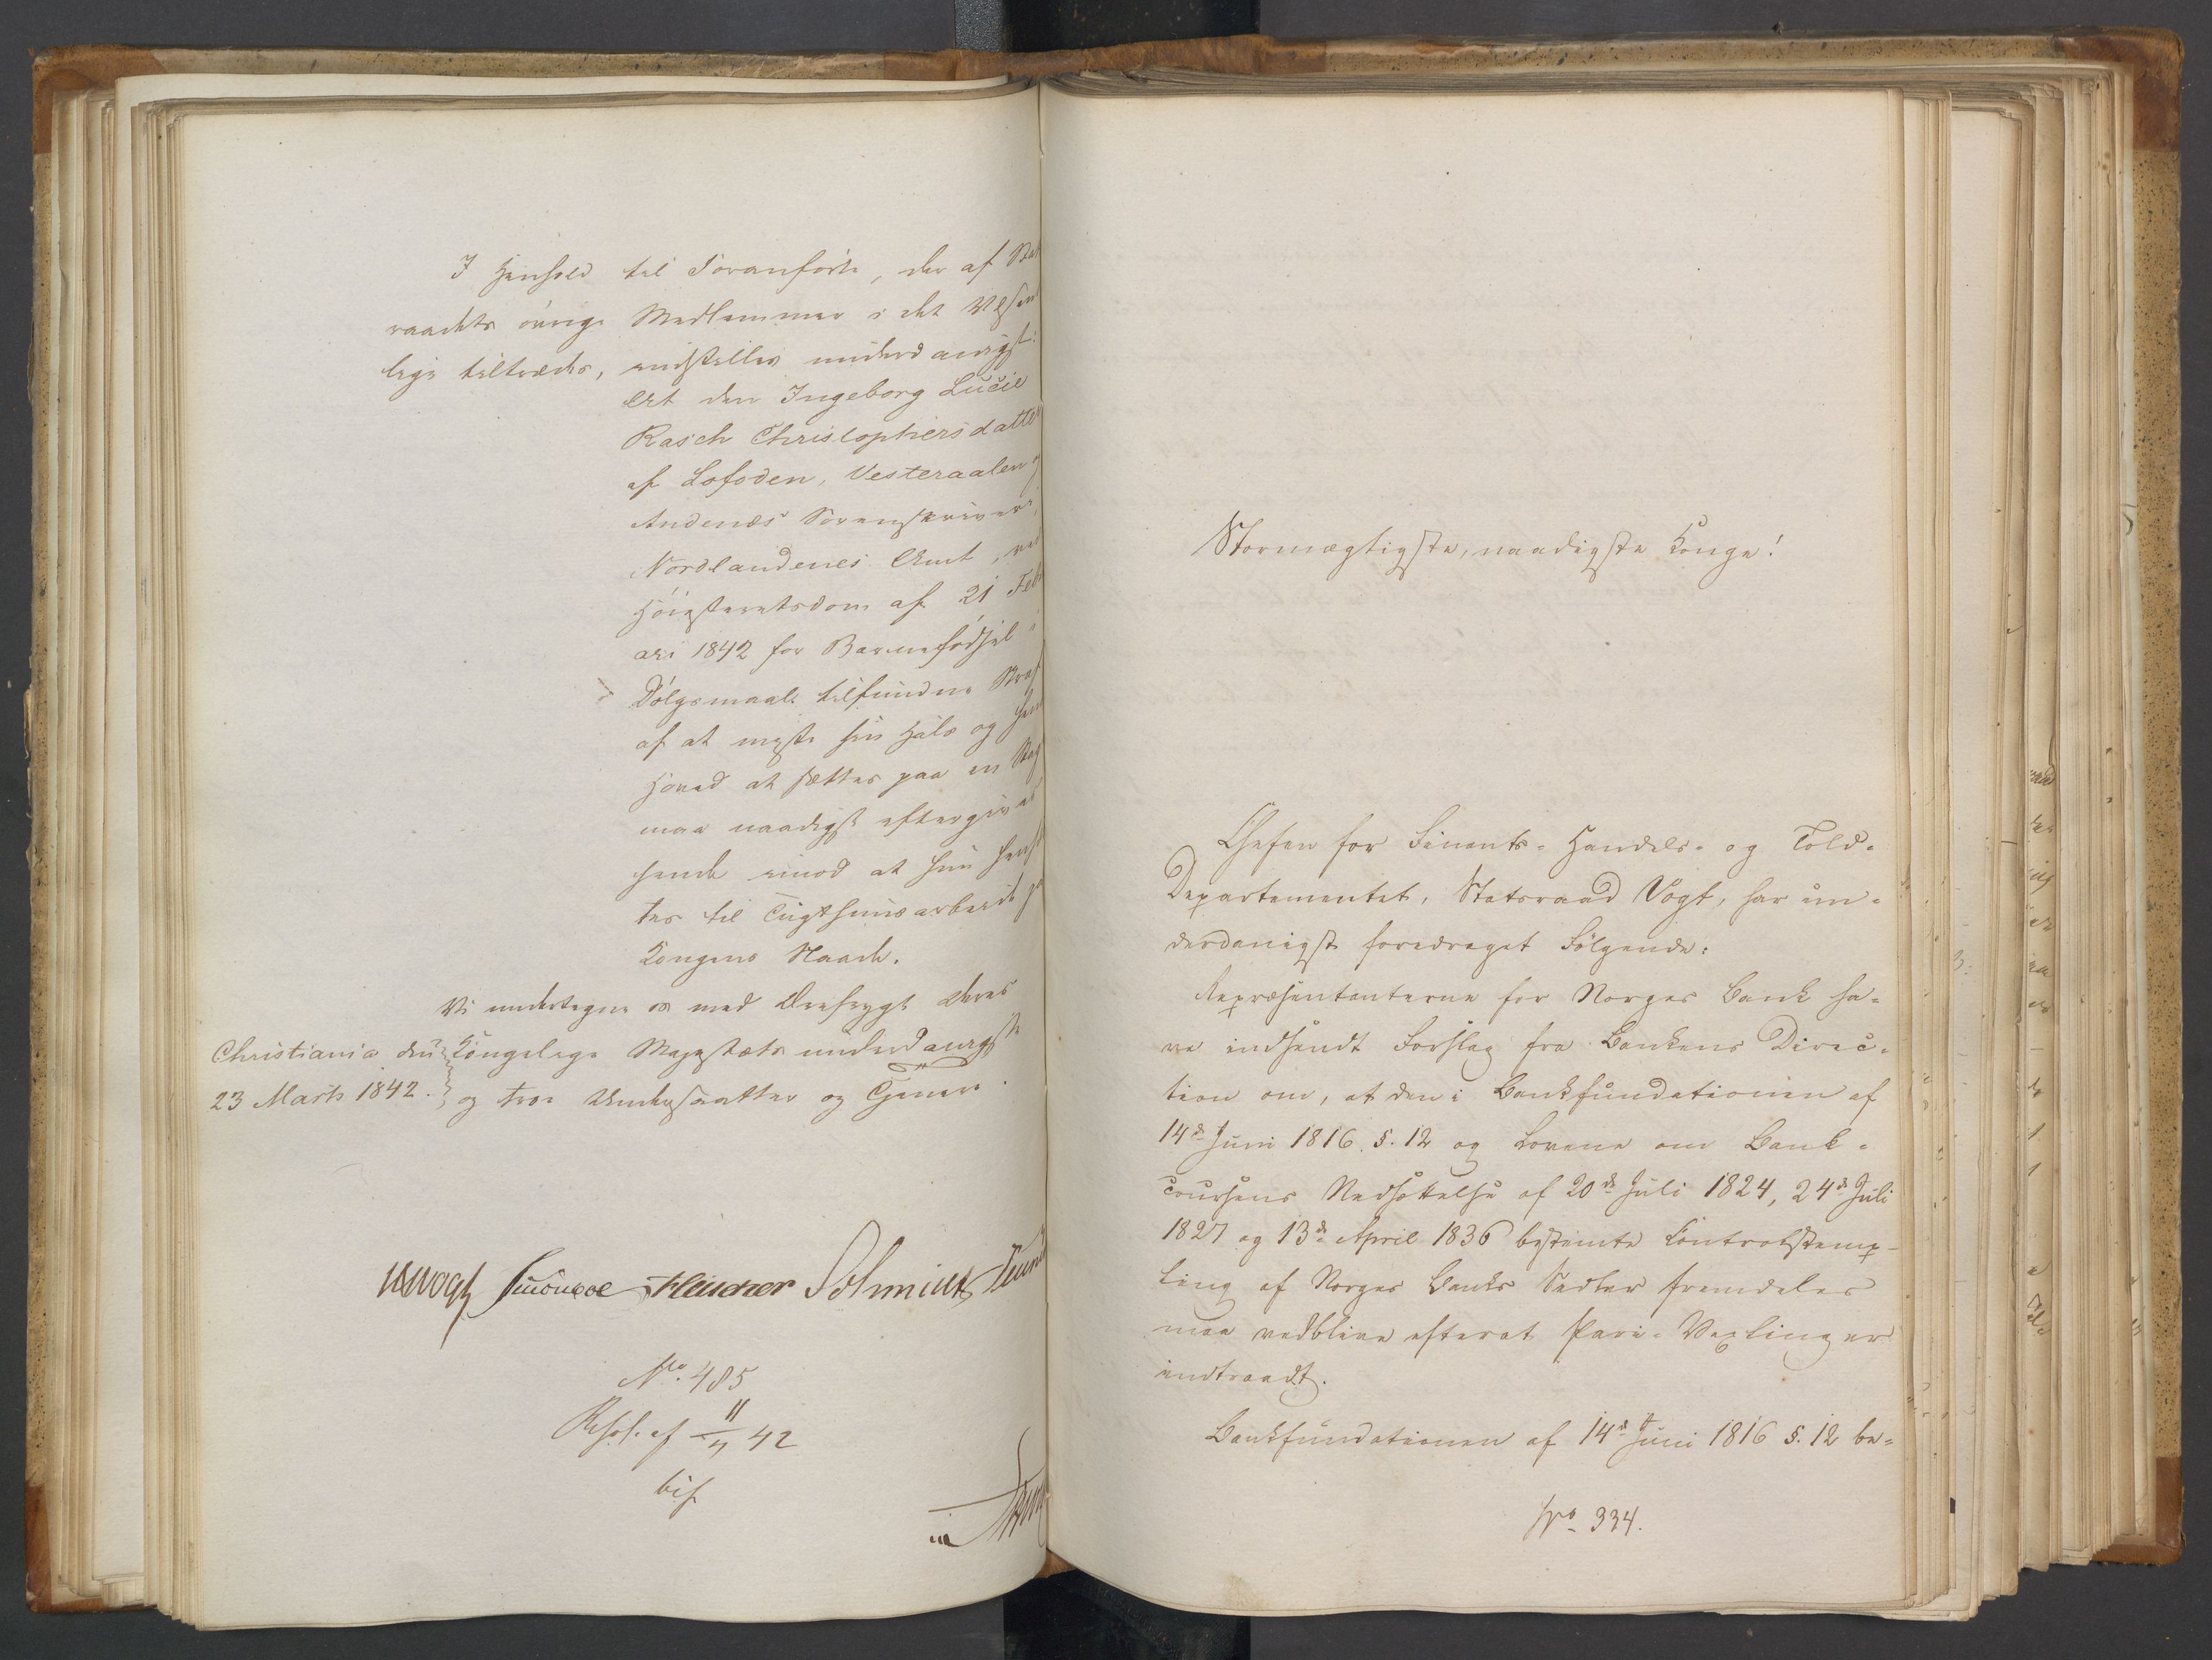 I Henhold til Foranførte, der af
raadets øvrige Medlemmer i det
lige tiltrædes, indstilles underdanigst:
at den Ingeborg Lucie
Rasch Christophersdatter
af Lofoden, Vesteraalen og
Andenæs Sorenskriveri,
Nordlandenes Amt, ved
Høiesteretsdom af 21 Feb
ari 1842 for Barnefødsel i
Dølgsmaal tilfundne Straf
af at miste sin Hals og
Hoved at sættes paa en
maa naadigst eftergives
hende imod at hun
tes til Tugthuusarbeide
Kongens Naade.
Vi undertegne os med Ærefrygt Deres
Christiania den Kongelige Majestæts underdanigste
23 Marts 1842. og troe Undersaatter og Tjenere.
No. 485
Resol. af 11/4 42
bif
Stormægtigste, naadigste Konge!
Chefen for Finants- Handels- og Told-
Departementet, Statsraad Vogt, har un-
derdanigst foredraget Følgende:
Repræsentanterne for Norges Bank ha-
ve indsendt Forslag fra Bankens Direc-
tion om, at den i Bankfundationen af
14de Juni 1816. §. 12 og Lovene om Bank-
coursens Nedsættelse af 20de Juli 1824, 24de Juli
1827 og 13de April 1836 bestemte Controlstemp-
ling af Norges Banks Sedler fremdeles
maa vedblive efterat Pari-Vexling er
indtraadt.
Bankfundationen af 14de Juni 1816 §. 12 be-
No 334.